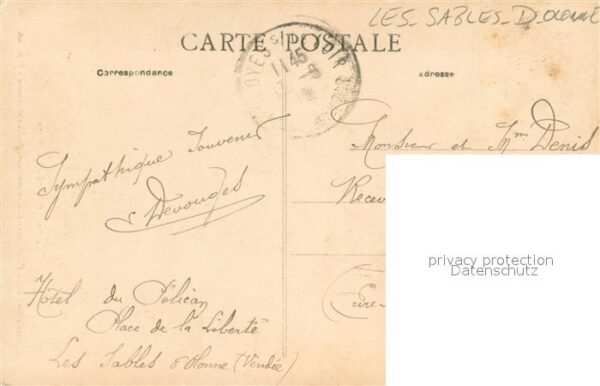 LES_SABLES_D_OLONNE
CARTE POSTALE
Correspondance
adresse
11 45
Sympathique Souvenir
Devouges
Hôtel du Pélican
Place de la Liberté
Les Sables d'Olonne (Vendée)
Monsieur et Mme Denis
Recev
Eure
privacy protection
Datenschutz